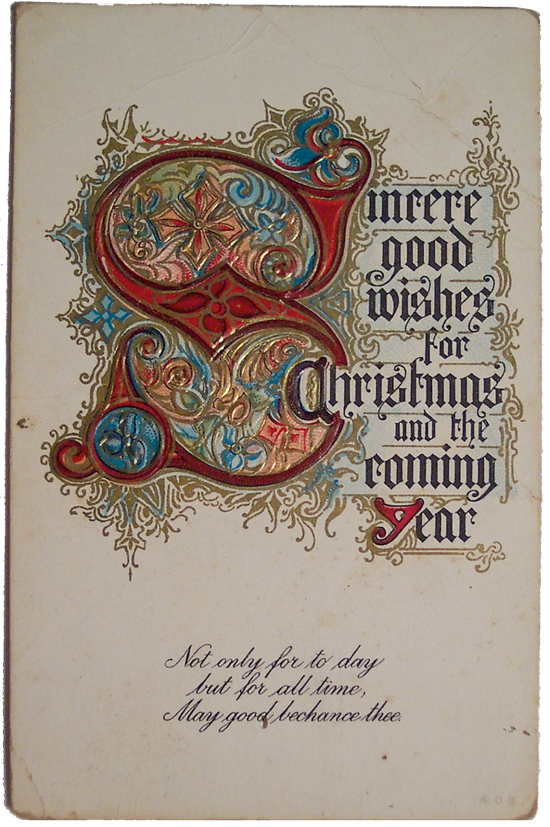 Sincere
good
wishes
for
Christmas
and the
coming
Year
Not only for to day
but for all time,
May good bechance thee.